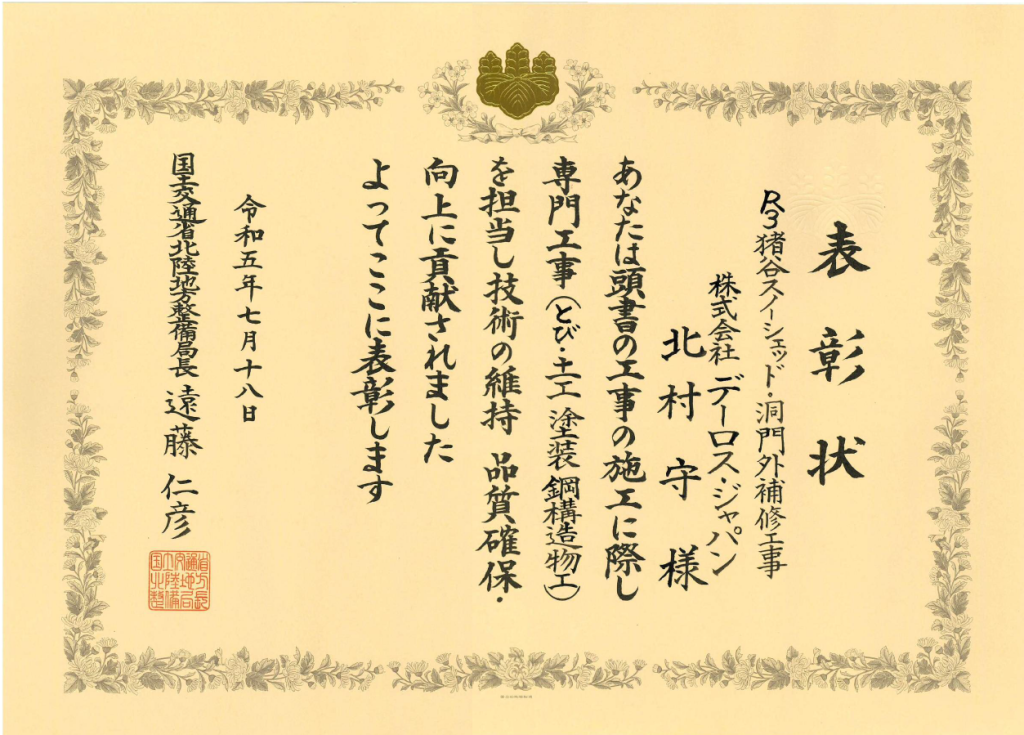 表彰状
R3猪谷スノーシェッド・洞門外補修工事
株式会社 デーロス・ジャパン
北村守様
あなたは頭書の工事の施工に際し
専門工事（とび・土工 塗装 鋼構造物工）
を担当し技術の維持 品質確保・
向上に貢献されました
よってここに表彰します
令和五年七月十八日
国土交通省北陸地方整備局長 遠藤 仁彦